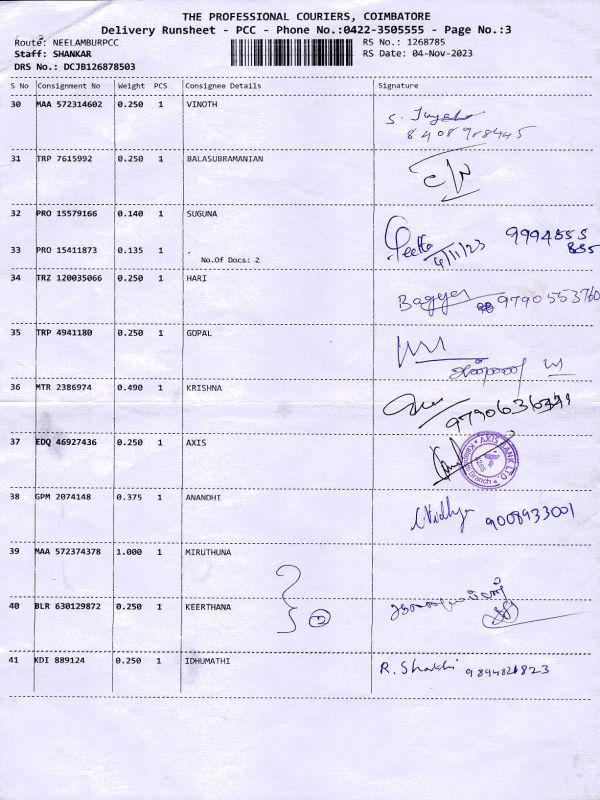 THE PROFESSIONAL COURIERS, COIMBATORE
Delivery Runsheet - PCC - Phone No.:0422-3505555 - Page No.:3
Route: NEELAMBURPCC RS No.: 1268785
Staff: SHANKAR RS Date: 04-Nov-2023
DRS No.: DCJB126878503
S No Consignment No Weight PCS Consignee Details Signature
30 MAA 572314602 0.250 1 VINOTH
S.
8408988445
31 TRP 7615992 0.250 1 BALASUBRAMANIAN
32 PRO 15579166 0.140 1 SUGUNA
Geetha 9994855
4/11/23 885
33 PRO 15411873 0.135 1
No.Of Docs: 2
34 TRZ 120035066 0.250 1 HARI
Bagya 9790553760
35 TRP 4941180 0.250 1 GOPAL
36 MTR 2386974 0.490 1 KRISHNA
37 EDQ 46927436 0.250 1 AXIS
AXIS BANK LTD.
Branch
38 GPM 2074148 0.375 1 ANANDHI
Vidhya 9008933001
39 MAA 572374378 1.000 1 MIRUTHUNA
40 BLR 630129872 0.250 1 KEERTHANA
2
41 KDI 889124 0.250 1 IDHUMATHI
R. Shakthi 9894826823